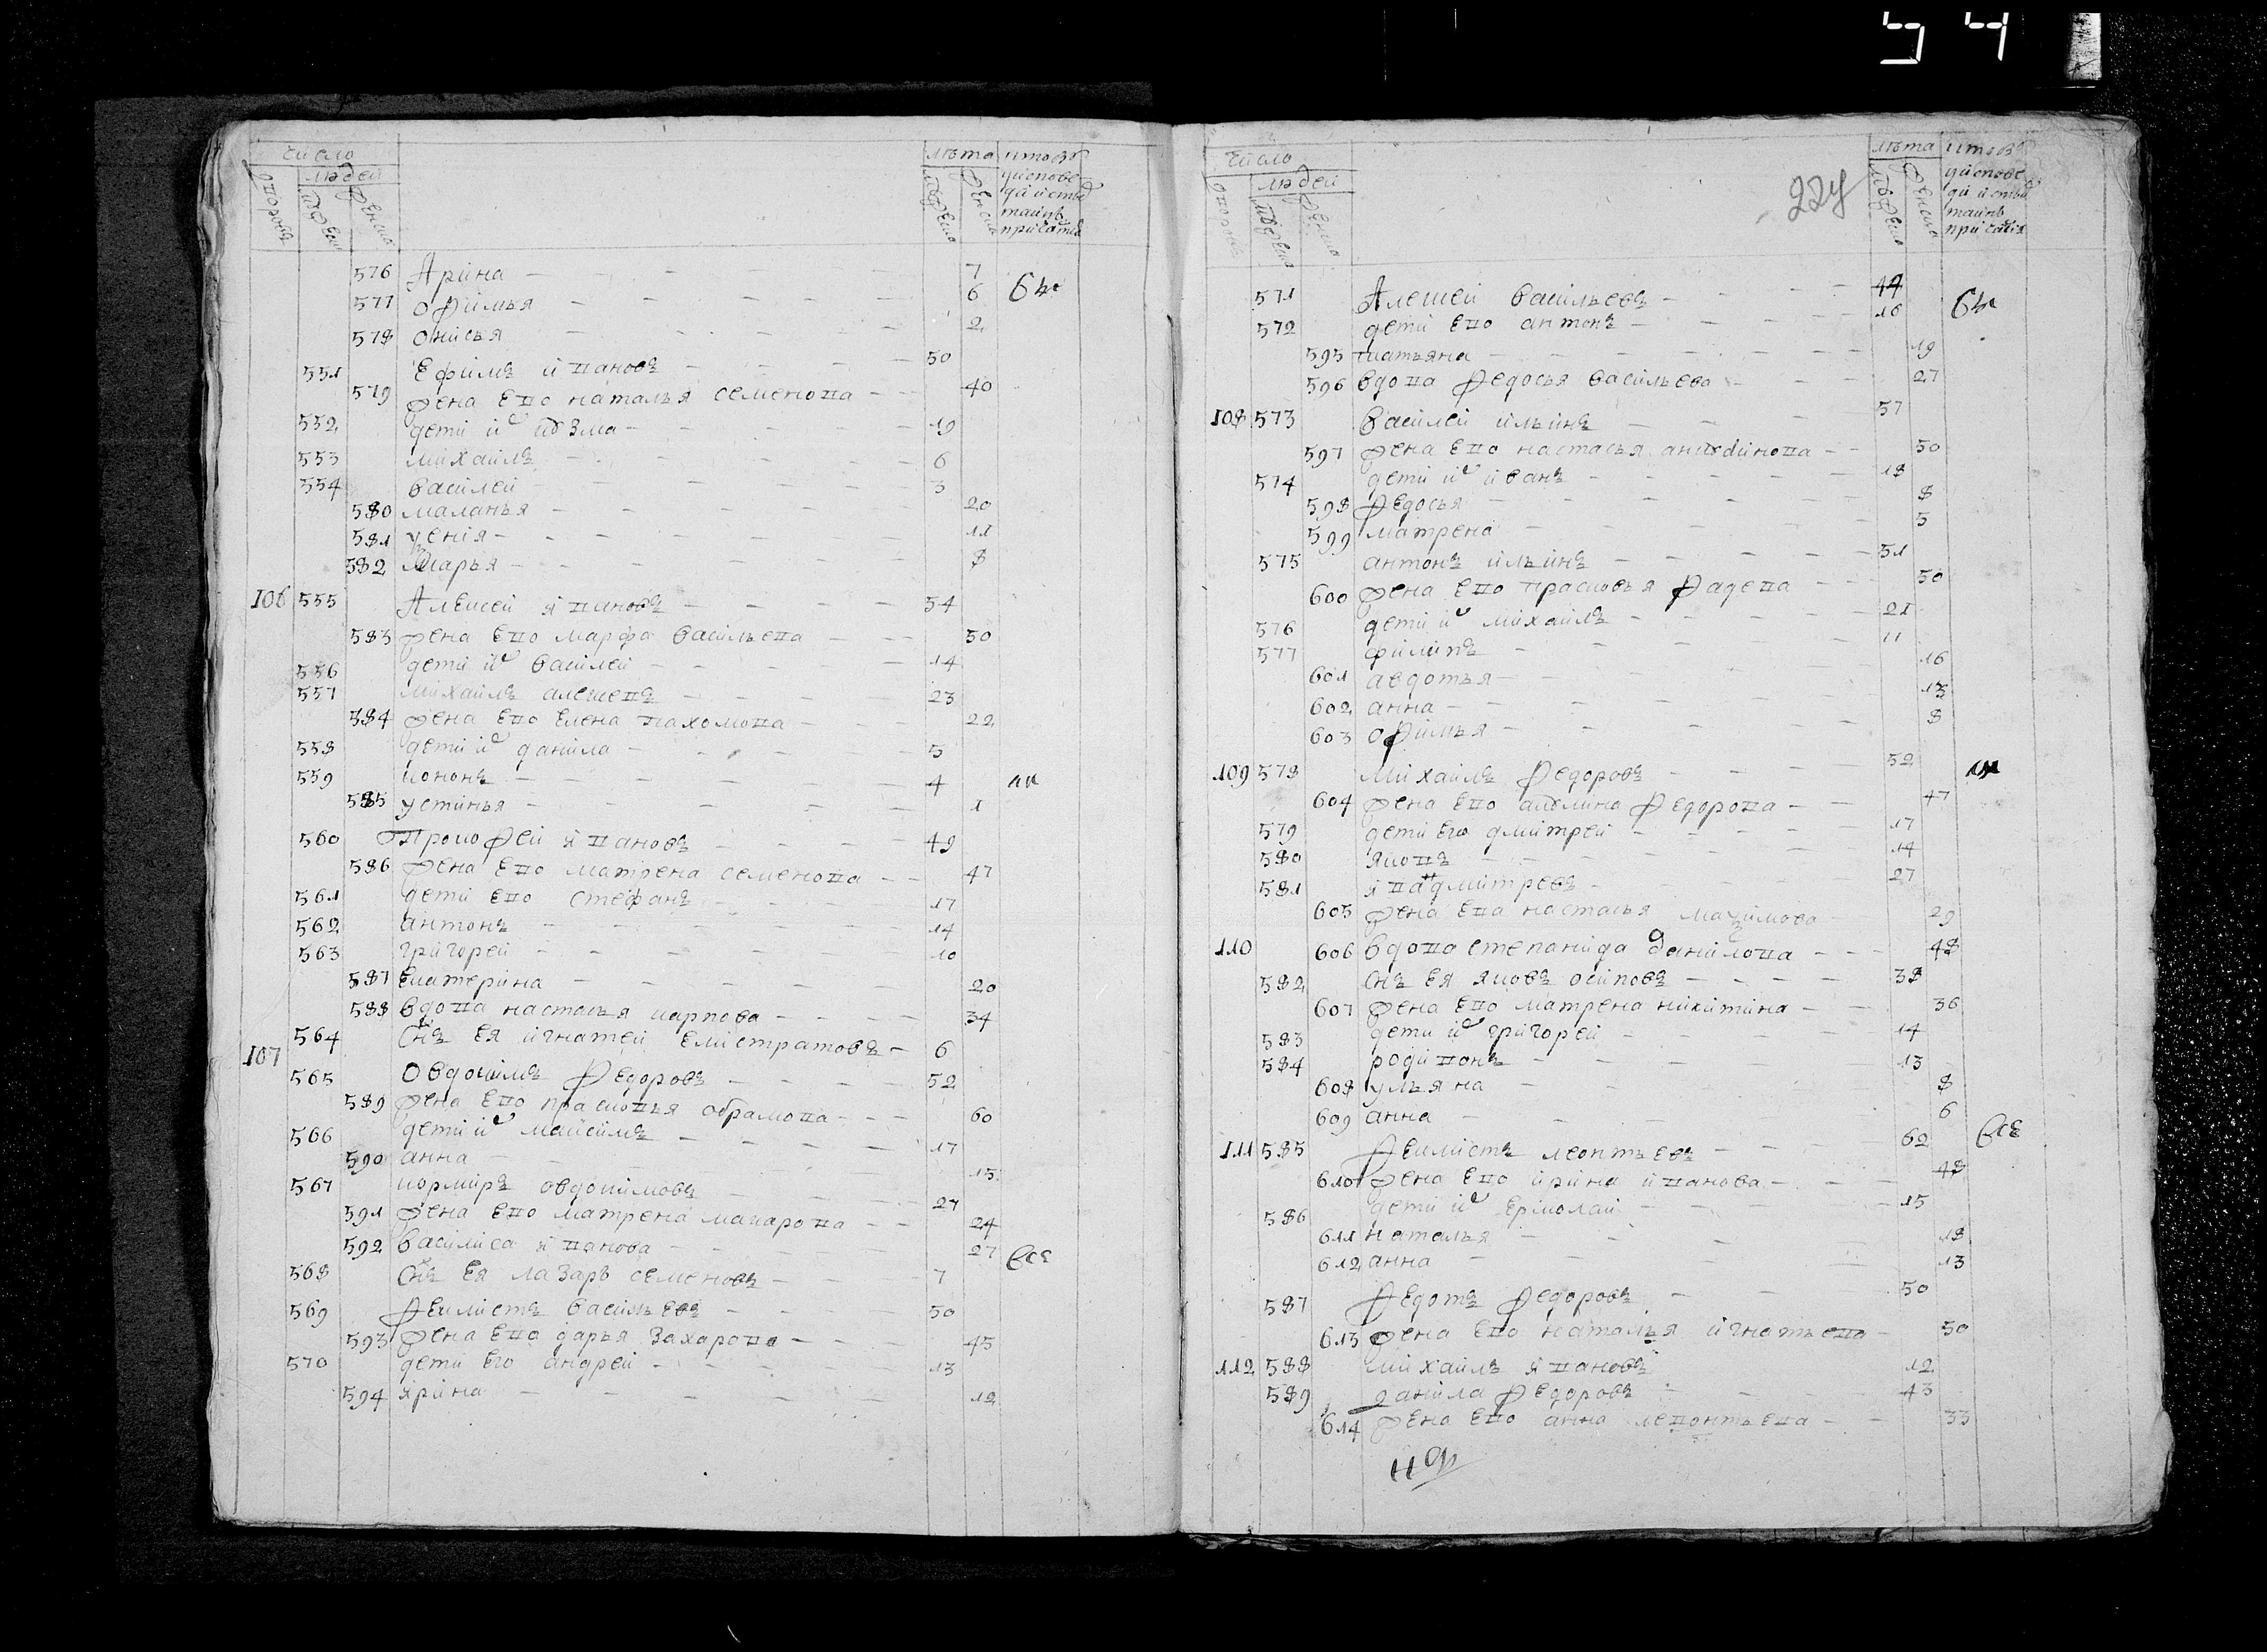 число
людей
лѣта
576 Арина 7
577 Офимья 6
578 Онисья 2
551 Ефимъ ивановъ 50
579 жена ево наталья семенова 40
552 дети их кузма 19
553 михаилъ 6
554 василей 3
580 маланья 20
581 11
582 марья 8
106 555 Алексей ивановъ 54
583 жена ево марфа васильева 50
556 дети их василей 14
557 михаилъ алексевъ 23
584 жена ево елена пахомова 22
558 дети их данила 5
559 кононъ 4
585 устинья 1
560 Трофей ивановъ 49
586 жена ево матрена семенова 47
561 дети ево стефанъ 17
562 антонъ 14
563 григорей 10
587 екатерина 20
588 вдова настасья карпова 34
564 снъ ея игнатей елистратовъ 6
107
565 Овдокимъ федоровъ 52
589 жена ево прасковья обрамова 60
566 дети их максимъ 17
590 анна 15
567 овдокимовъ 27
591 жена ево матрена макарова 24
592 василиса иванова 27 все
568 снъ ея лазарь семеновъ 7
569 феклистъ васильевъ 50
593 жена ево дарья захарова 45
570 дети его андрей 13
594 ирина 12
число
людей
лѣта
224
571 Алексей васильевъ 44
572 дети ево антонъ 16
595 татьяна 19
596 вдова федосья васильева 27
108 573 василей ильинъ 57
597 жена ево настасья 50
574 дети их иванъ 18
598 федосья 8
599 матрена 5
575 антонъ ильинъ 51
600 жена ево прасковья фадева 50
576 дети их михаилъ 21
577 филипъ 11
601 авдотья 16
602 анна 13
603 офимья 8
109 578 михаилъ федоровъ 52
604 жена ево акулина федорова 47
579 дети его дмитрей 17
580 яковъ 14
581 дмитревъ 27
605 жена ева настасья максимова 29
110 606 вдова степанида данилова 48
582 снъ ея яковъ осиповъ 38
607 жена ево матрена никитина 36
583 дети их григорей 14
584 родивонъ 13
608 ульяна 8
609 анна 6
111 585 феклистъ леонтьевъ 62 все
610 жена ево ирина иванова 48
586 дети их ермолай 15
611 наталья 18
612 анна 13
587 федотъ федоровъ 50
613 жена ево наталья игнатьева 50
112 588 михаилъ ивановъ 12
589 данила федоровъ 43
614 жена ево анна левонтьева 33